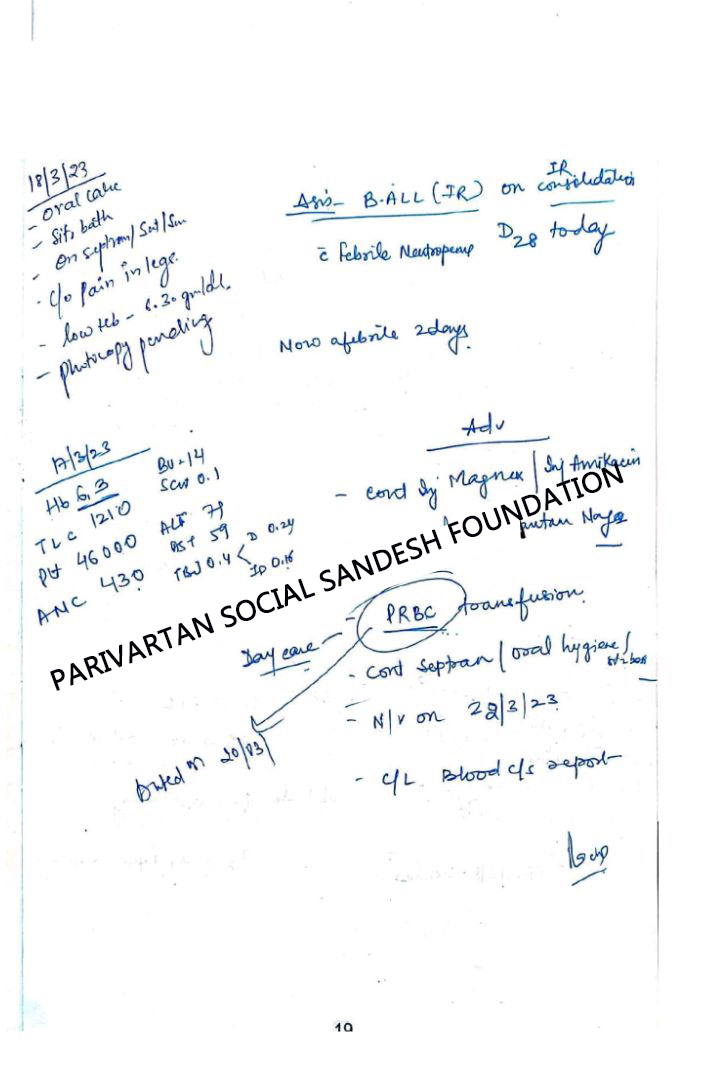 18/3/23
- oral care
- Sitz bath
- On septran/Sat/Sun
- c/o Pain in legs.
- low Hb - 6.30 gm/dl.
- Photocopy pending
Asis- B-ALL (IR) on IR consolidation
c̄ Febrile Neutropenia D28 today
Now afebrile 2 days.
17/3/23
Hb 6.3
TLC 1210
Plt 46000
ANC 430
BU - 14
SCr 0.1
ALT 79
AST 59
TBJ 0.4 < D 0.24
ID 0.16
Adv
- cont Inj Magnex / Inj Amikacin
- PRBC transfusion.
Day care -
- Cont Septran / oral hygiene /
- N/v on 22/3/23
- c/L Blood c/s report
on 20/03/
PARIVARTAN SOCIAL SANDESH FOUNDATION
19